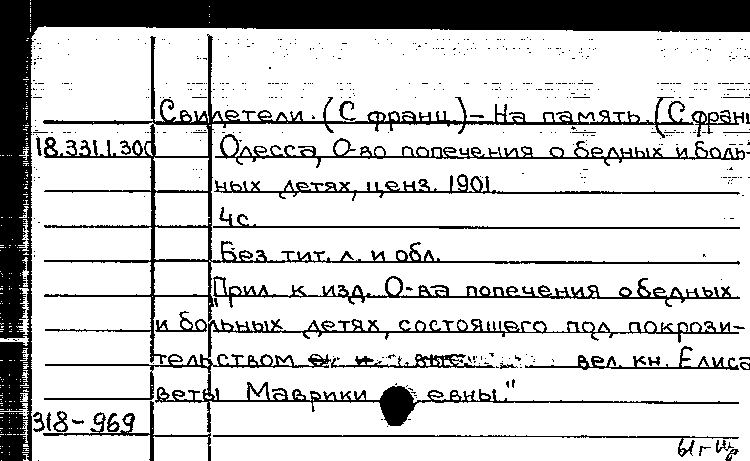 Свидетели. (С франц.) – На память. (С франц
18.331.1.300 Одесса, О-во попечения о бедных и боль-
ных детях, ценз. 1901.
4с.
Без тит. л. и обл.
"Прил. к изд. О-ва попечения о бедных
и больных детях, состоящего под покрови-
тельством вел. кн. Елиса
веты Маврикиевны."
318-969